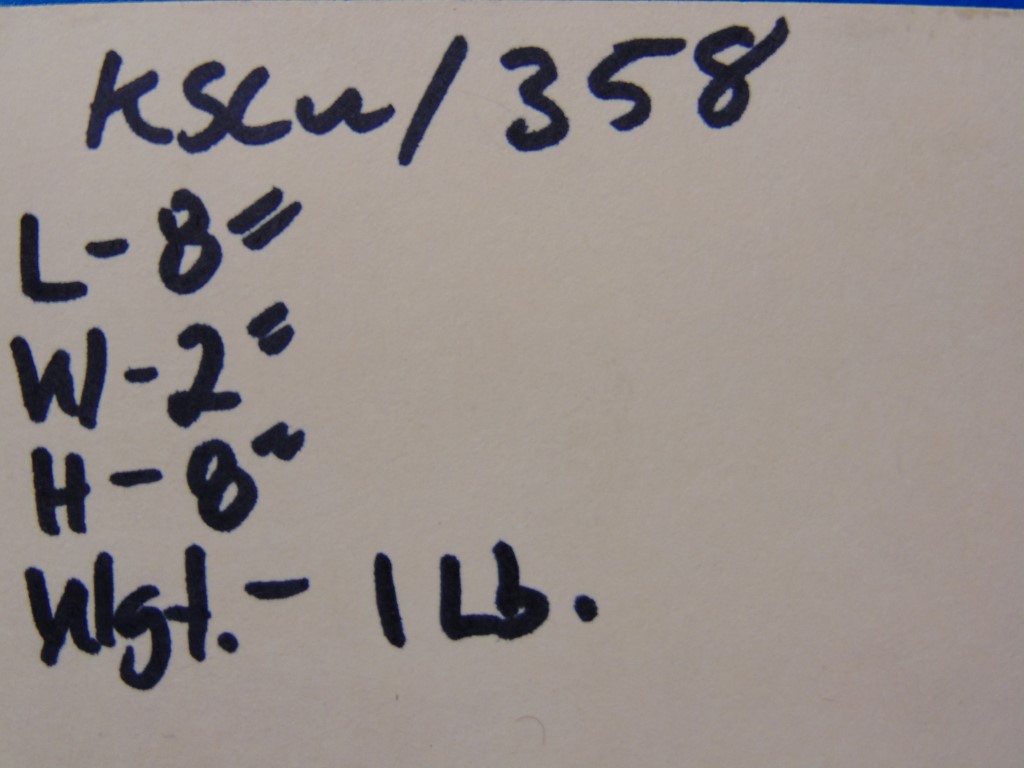 KSLu/358
L-8"
W-2"
H-8"
Wgt.- 1 Lb.